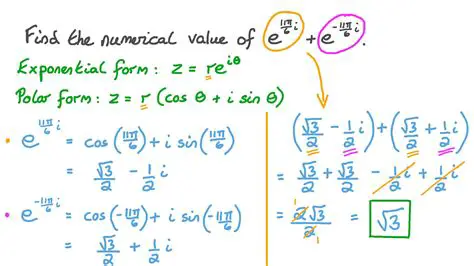 Find the numerical value of e^(11π/6 i) + e^(-11π/6 i).
Exponential form: z = re^(iθ)
Polar form: z = r (cos θ + i sin θ)
e^(11π/6 i) = cos (11π/6) + i sin (11π/6)
= √3/2 - 1/2 i
e^(-11π/6 i) = cos (-11π/6) + i sin (-11π/6)
= √3/2 + 1/2 i
(√3/2 - 1/2 i) + (√3/2 + 1/2 i)
= √3/2 + √3/2 - 1/2 i + 1/2 i
= 2√3/2 = √3
1